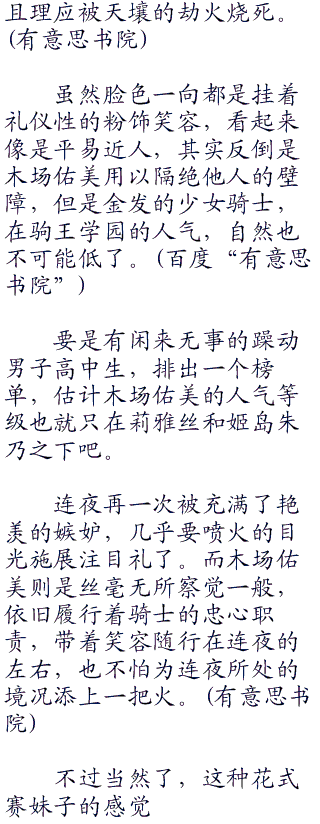 且理应被天壤的劫火烧死。
(有意思书院)
虽然脸色一向都是挂着
礼仪性的粉饰笑容，看起来
像是平易近人，其实反倒是
木场佑美用以隔绝他人的壁
障，但是金发的少女骑士，
在驹王学园的人气，自然也
不可能低了。(百度“有意思
书院”)
要是有闲来无事的躁动
男子高中生，排出一个榜
单，估计木场佑美的人气等
级也就只在莉雅丝和姬岛朱
乃之下吧。
连夜再一次被充满了艳
羡的嫉妒，几乎要喷火的目
光施展注目礼了。而木场佑
美则是丝毫无所察觉一般，
依旧履行着骑士的忠心职
责，带着笑容随行在连夜的
左右，也不怕为连夜所处的
境况添上一把火。(有意思书
院)
不过当然了，这种花式
赛妹子的感觉